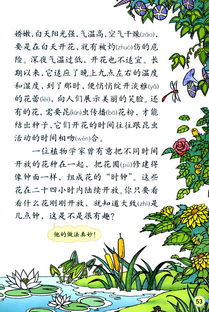 娇嫩,白天阳光强,气温高,空气干燥(zào),
要是在白天开花,就有被灼(zhuó)伤的危
险。深夜气温过低,开花也不适宜。长
期以来,它适应了晚上九点左右的温度
和湿度,到了那时,便悄悄绽开淡雅(yǎ)
的花蕾(lěi),向人们展示美丽的笑脸。还
有的花,需要昆(kūn)虫传播(bō)花粉,才能
结出种子,它们开花的时间往往跟昆虫
活动的时间相吻(wěn)合。
一位植物学家曾有意把不同时间
开放的花种在一起,把花圃(pǔ)修建得
像钟面一样,组成花的“时钟”。这些
花在二十四小时内陆续开放。你只要看
看什么花刚刚开放,就知道大致(zhì)是
几点钟,这是不是很有趣?
他的做法真妙!
53